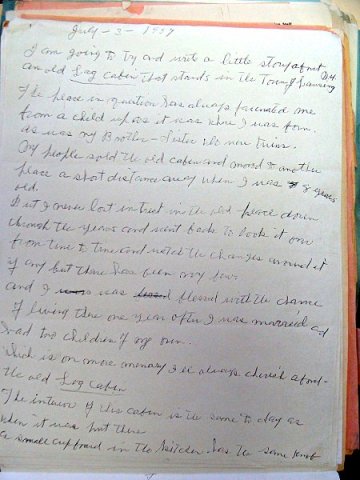 July - 3 - 1959
I am going to try and write a little story about
an old Log Cabin that stands in the Town of
The place in question has always facinated me
from a child up as it was where I was born.
as was my Brother - Sister who were twins.
My people sold the old cabin and moved to another
place a short distance away when I was 8 years
old.
But I never lost intrest in the old place down
through the years and went back to look it over
from time to time and noted the changes around it
if any but there has been very few.
and I was blessed with the chance
of living there one year after I was married and
had two children of my own.
Which is one more memory I'll always cherish about
the old Log Cabin
The interior of this cabin is the same to day as
when it was built there
a small cupboard in the kitchen has the same knob